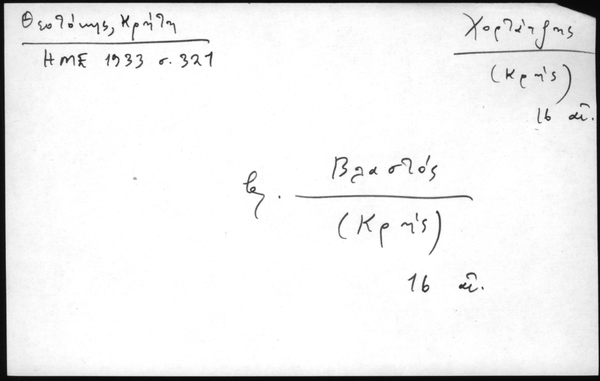 Θεοτόκης, Κρήτη
ΗΜΕ 1933 σ. 321
Χορτάτζης
(Κρής)
16 αἰ.
βλ. Βλαστός
(Κρής)
16 αἰ.